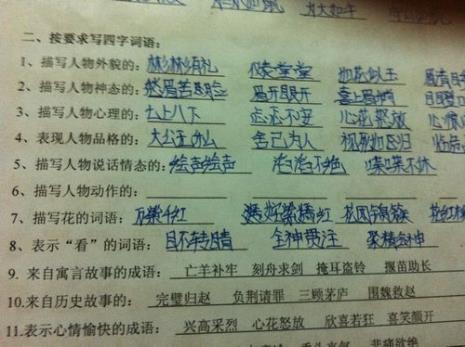 二、按要求写四字词语：
1、描写人物外貌的：彬彬有礼 仪表堂堂 如花似玉 眉清目
2、描写人物神态的：愁眉苦脸 眉开眼笑 喜上眉梢 目瞪口
3、描写人物心理的：七上八下 忐忑不安 心花怒放 心惊
4、表现人物品格的：大公无私 舍己为人 视死如归 临危
5、描写人物说话情态的：绘声绘色 滔滔不绝 喋喋不休
6、描写人物动作的：
7、描写花的词语：万紫千红 姹紫嫣红 花团锦簇
8、表示“看”的词语：目不转睛 全神贯注 聚精会神
9. 来自寓言故事的成语：亡羊补牢 刻舟求剑 掩耳盗铃 揠苗助长
10.来自历史故事的：完璧归赵 负荆请罪 三顾茅庐 围魏救赵
11.表示心情愉快的成语：兴高采烈 心花怒放 欣喜若狂 喜笑颜开
垂头丧气 悲痛欲绝